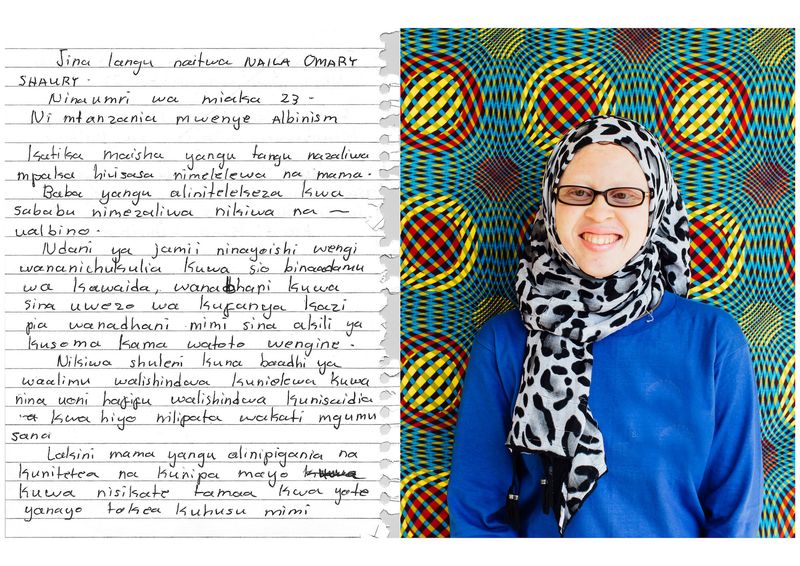 Jina langu naitwa NAILA OMARY
SHAURY.
Ninaumri wa miaka 23.
Ni mtanzania mwenye Albinism
Katika maisha yangu tangu nazaliwa
mpaka hivisasa nimelelewa na mama.
Baba yangu alinitelekeza kwa
sababu nimezaliwa nikiwa na
ualbino.
Ndani ya jamii ninayoishi wengi
wananichukulia kuwa sio binaadamu
wa kawaida, wanadhani kuwa
sina uwezo wa kufanya kazi
pia wanadhani mimi sina akili ya
kusoma kama watoto wengine.
Nikiwa shuleni kuna baadhi ya
waalimu walishindwa kunielewa kuwa
nina uoni hafifu walishindwa kunisaidia
kwa hiyo nilipata wakati mgumu
sana
Lakini mama yangu alinipigania na
kunitetea na kunipa mayo
kuwa nisikate tamaa kwa yote
yanayo tokea kuhusu mimi